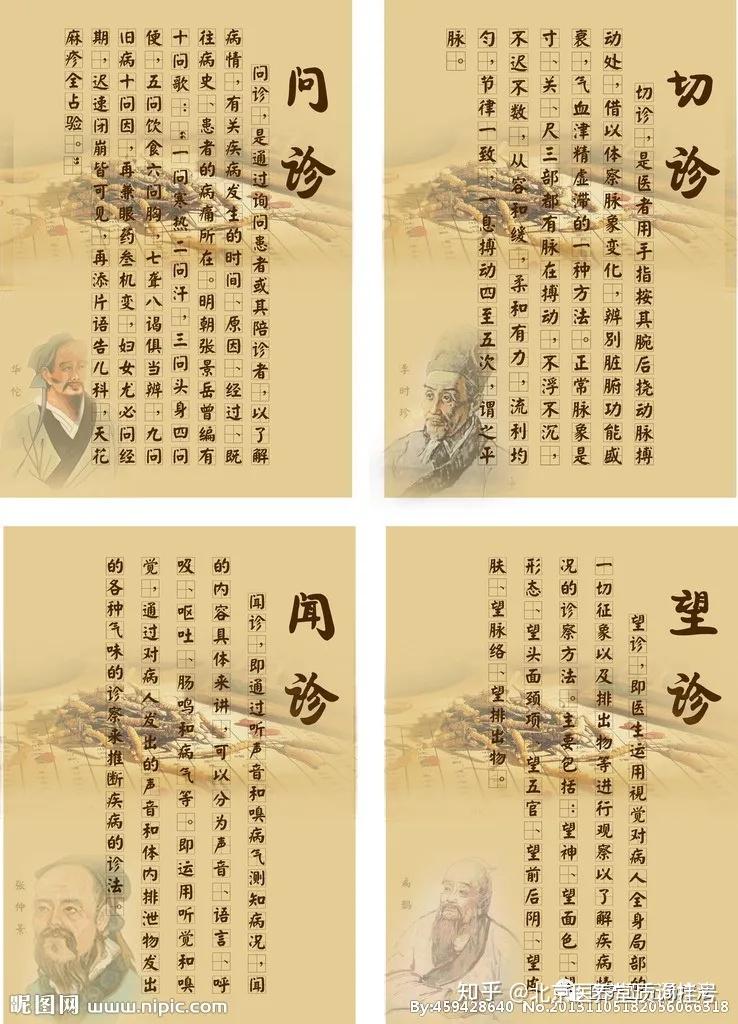 问诊
问诊，是通过询问患者或其陪诊者，以了解
病情，有关疾病发生的时间、原因、经过、既
往病史、患者的病痛所在。明朝张景岳曾编有
十问歌：“一问寒热二问汗，三问头身四问
便，五问饮食六问胸，七聋八谒俱当辨，九问
旧病十问因，再兼眼药叁机变，妇女尤必问经
期，迟速闭崩皆可见，再添片语告儿科，天花
麻疹全占验。”
华佗
切诊
切诊，是医者用手指按其腕后挠动脉搏
动处，借以体察脉象变化，辨别脏腑功能盛
衰，气血津精虚滞的一种方法。正常脉象是
寸、关、尺三部都有脉在搏动，不浮不沉，
不迟不数，从容和缓，柔和有力，流利均
匀，节律一致，一息搏动四至五次，谓之平
脉。
李时珍
闻诊
闻诊，即通过听声音和嗅病气测知病况，闻
的内容具体来讲，可以分为声音、语言、呼
吸、呕吐、肠鸣和病气等。即运用听觉和嗅
觉，通过对病人发出的声音和体内排泄物发出
的各种气味的诊察来推断疾病的诊法。
张仲景
望诊
望诊，即医生运用视觉对病人全身局部的
一切征象以及排出物等进行观察以了解疾病情
况的诊察方法。主要包括：望神、望面色、望
形态、望头面颈项、望五官、望前后阴、望皮
肤、望脉络、望排出物。
扁鹊
昵图网 www.nipic.com
知乎 @北京医养堂
By:459428640 No.20131105182056066318